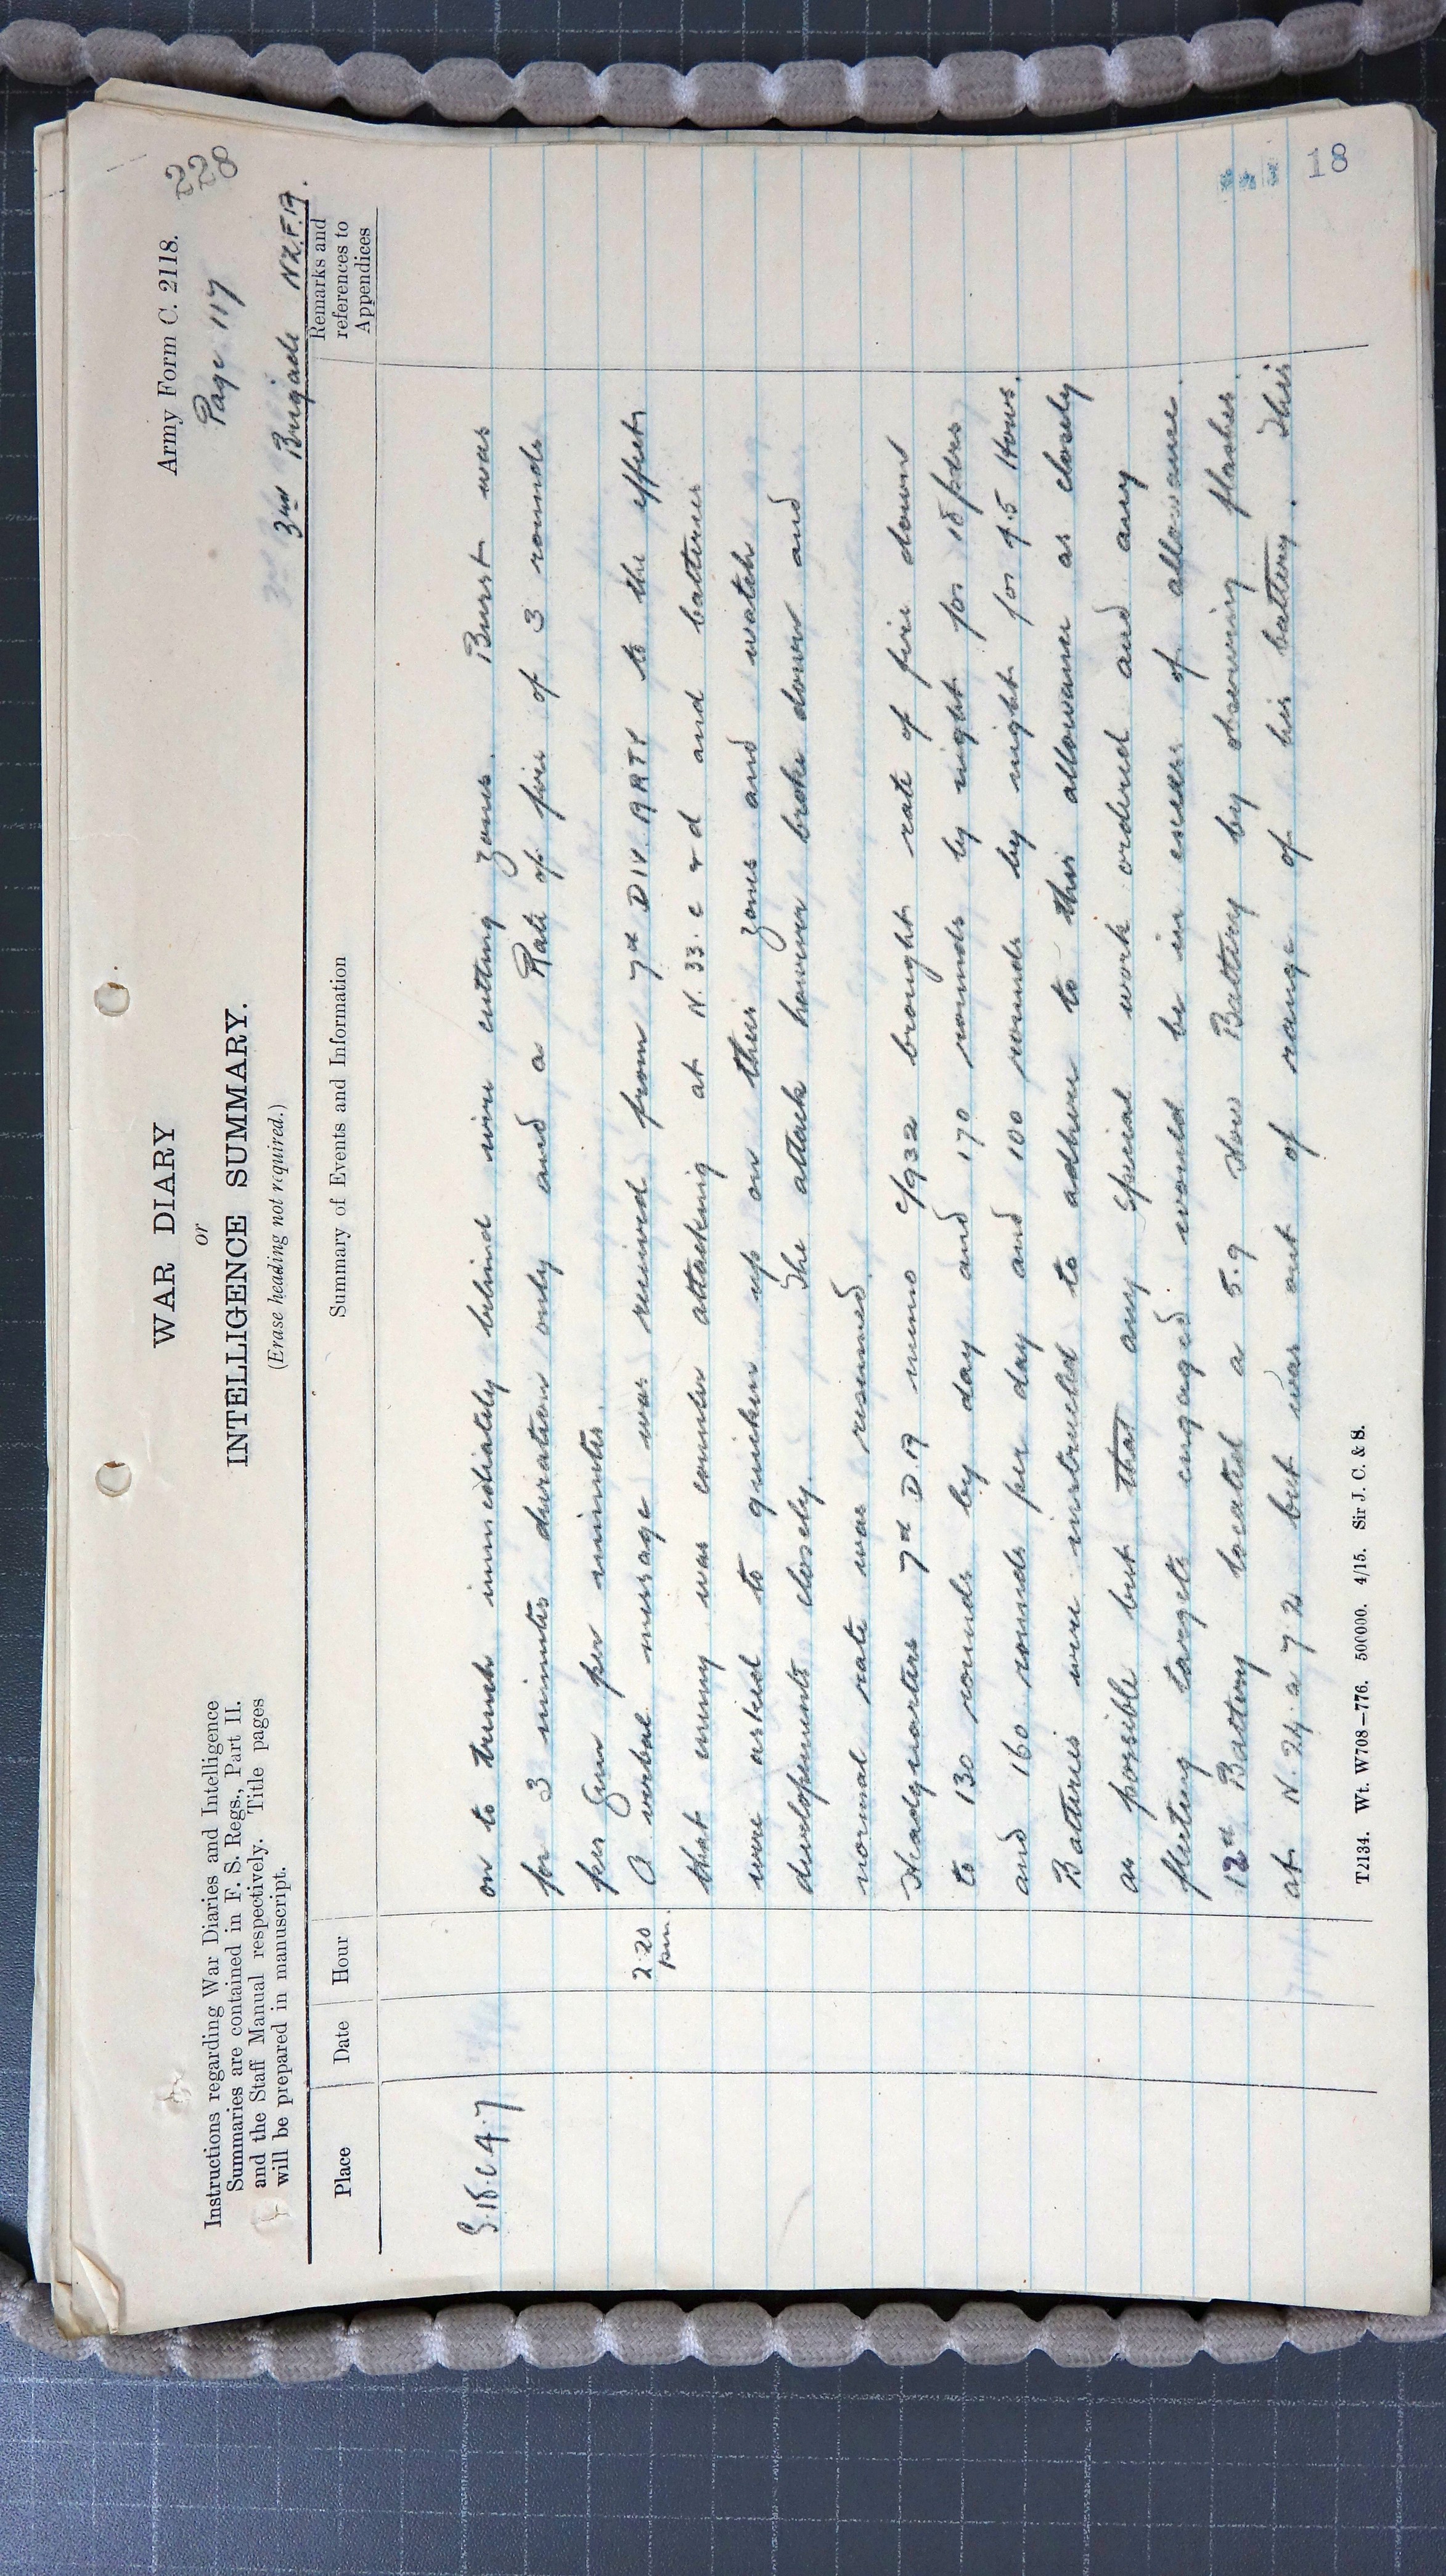 Army Form C. 2118.
228
WAR DIARY
or
INTELLIGENCE SUMMARY.
(Erase heading not required.)
Page 117
3rd Brigade N.Z.F.A.
Instructions regarding War Diaries and Intelligence
Summaries are contained in F. S. Regs., Part II.
and the Staff Manual respectively. Title pages
will be prepared in manuscript.
Place Date Hour Summary of Events and Information Remarks and references to Appendices
S.18.c.4.7 on to trench immediately behind wire cutting zones. Burst was
for 3 minutes duration only and a Rate of fire of 3 rounds
per Gun per minute.
2.20 pm. A verbal message was received from 7th DIV. ARTY to the effect
that enemy was counter attacking at N.33.c & d and batteries
were asked to quicken up on their zones and watch
developements closely. The attack however broke down and
normal rate was resumed.
Headquarters 7th D A memo C/932 brought rate of fire down
to 130 rounds by day and 170 rounds by night for 18 pdrs
and 160 rounds per day and 100 rounds by night for 4.5 Hows.
Batteries were instructed to adhere to this allowance as closely
as possible but that any special work ordered and any
fleeting targets engaged would be in excess of allowance.
12th Battery located a 5.9 How Battery by observing flashes.
at N.24.a.7.2 but was out of range of his battery. This
T2134. Wt. W708—776. 500000. 4/15. Sir J. C. & S.
18